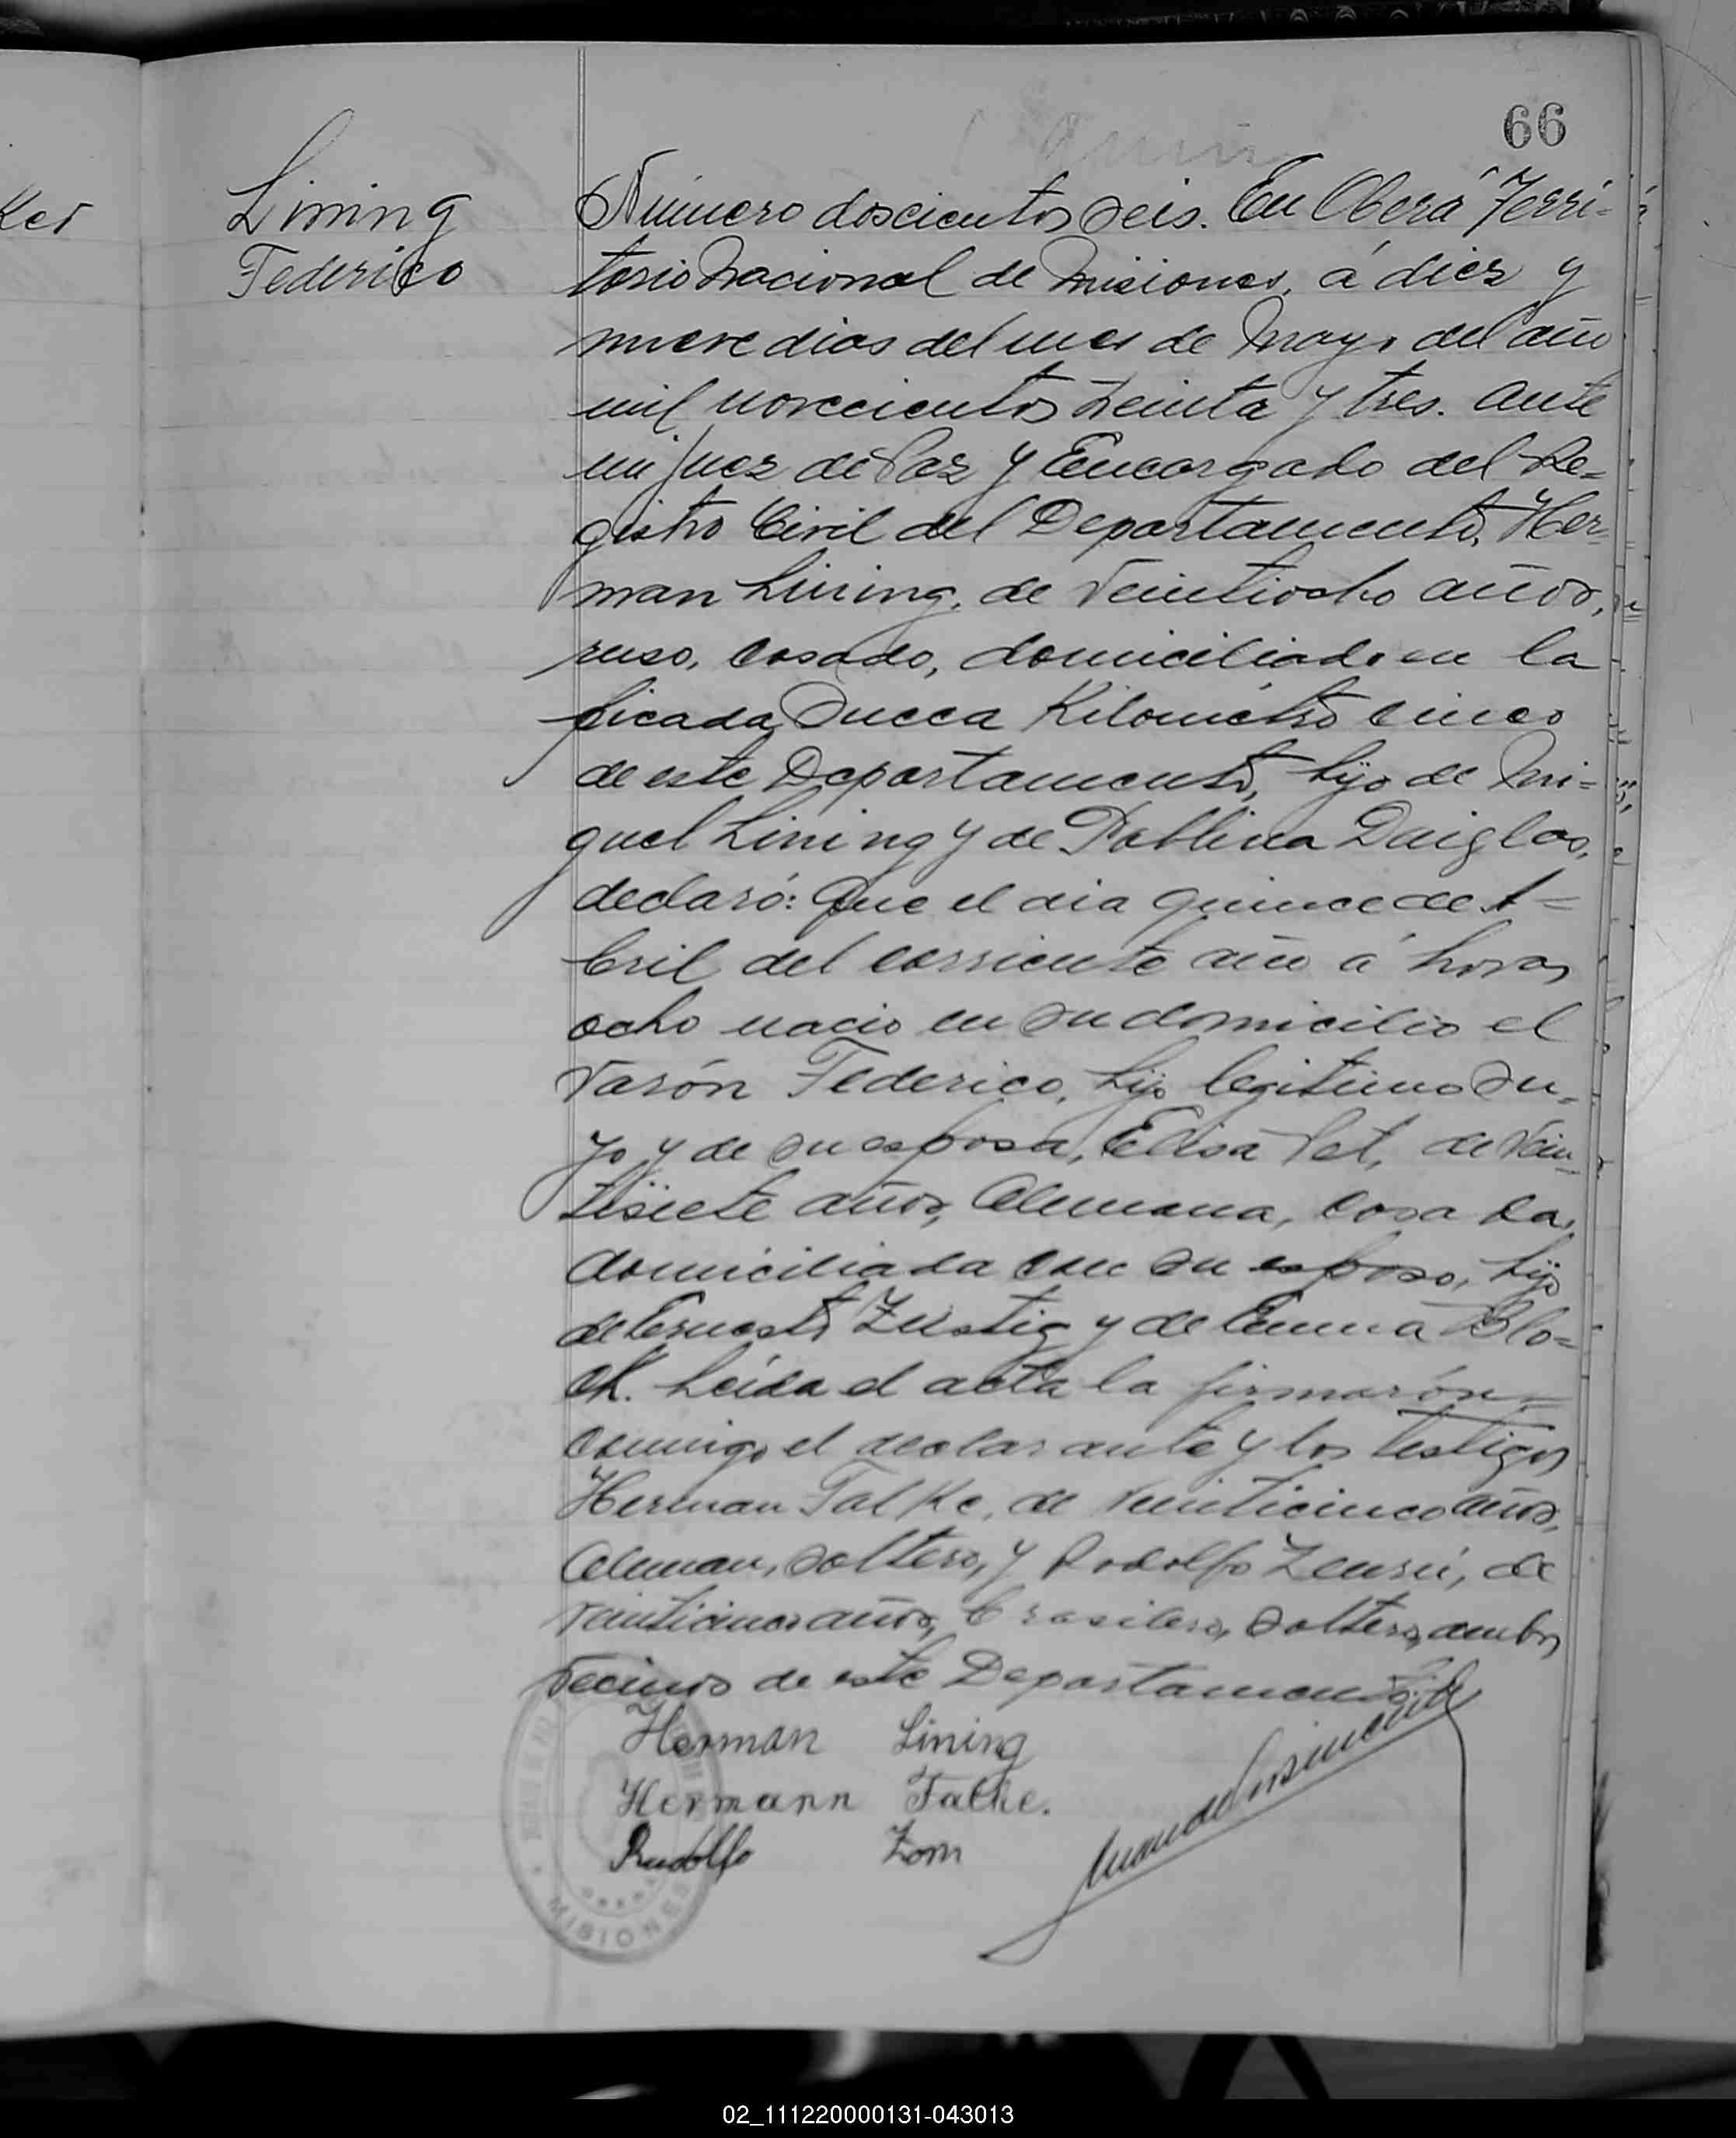 66
Ker
Lining
Federico
Número doscientos seis. En Oberá Terri-
torio Nacional de Misiones, á diez y
nueve dias del mes de Mayo del año
mil novecientos treinta y tres. Ante
mi Juez de Paz y Encargado del Re-
gistro Civil del Departamento, Her-
man Lining, de veintiocho años,
ruso, casado, domiciliado en la
picada Sueca Kilometro cinco
de este Departamento, hijo de Mi-
guel Lining y de Pablina Daiglas,
declaró: Que el dia quince de A-
bril del corriente año á horas
ocho nacio en su domicilio el
varón Federico, hijo legitimo su-
yo y de su esposa, Elisa Pet, de vein-
tisiete años, Alemana, casada,
domiciliada con su esposo, hija
de Ernesto Zustig y de Emma Blo-
ck. Leida el acta la firmarón
conmigo el declarante y los testigos
Herman Falke, de veinticinco años,
Aleman, soltero, y Rodolfo, de
veinticinco años, brasilero, soltero, ambos
vecinos de este Departamento.
Herman Lining
Hermann Falke.
Rudolfo Zorn
MISIONES
02_111220000131-043013